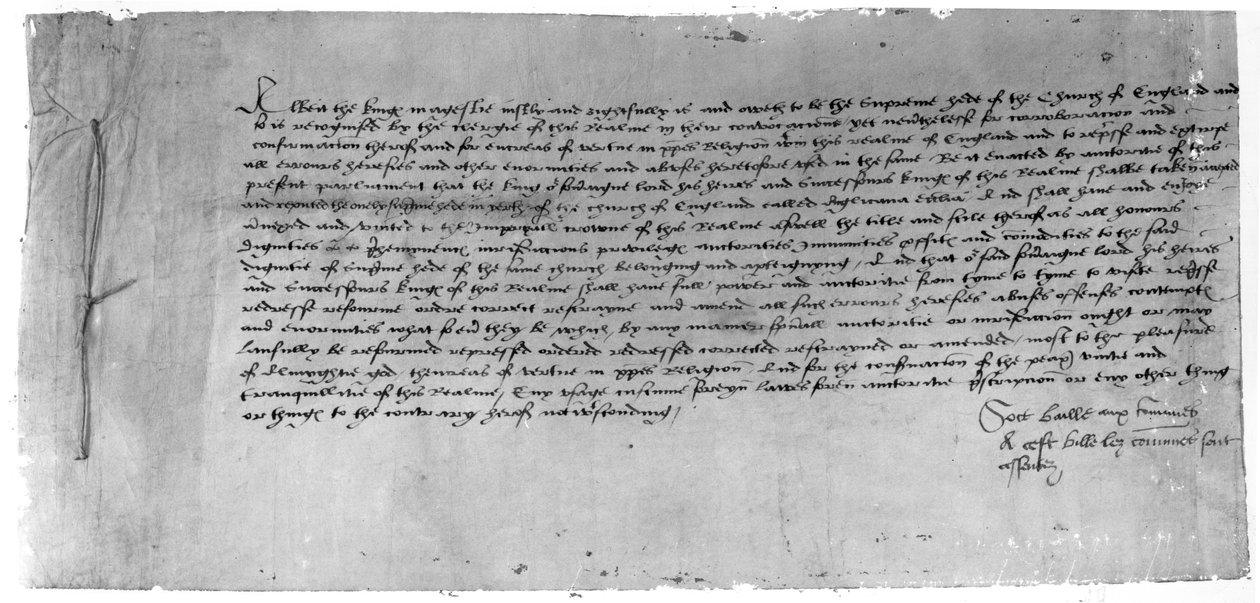 Albeit the kings mageste iustly and rightfully is and oweth to be the Supreme hede of the Church of England and
so is recognised by the clergie of this Realme in their convocacions / yet neuerthelesse for corroboracion and
confirmacion therof and for encreas of vertue in xpes Religion wtin this realme of England and to repsse and extirpe
all errours heresies and other enormities and abuses heretofore vsed in the same Be it enacted by auctorite of this
present parliament that the king or souaigne lord his heires and Successours kings of this Realme shalbe taken accepted
and reputed the onely supreme hede in yerth of the church of England called Anglicana ecclia / And shall haue and enjoye
annexed and vnited to the Imperyall crowne of this Realme aswell the title and stile therof as all honours
Dignities phemmences iurisdiccions privileges auctorities Immunities pfits and comodities to the said
dignitie of Supme hede of the same church belonging and apteignyng / And that or said souaigne lord his heires
and Successours kings of this Realme shall haue full power and auctoritie from tyme to tyme to visite repsse
redresse reforme ordre correct restrayne and amend all such errours heresies abuses offenses contempts
and enormities what soeuer they be which by any maner spuall auctoritie or iurisdiccion ought or may
laufully be reformed repressed ordered redressed corrected restrayned or amended / most to the pleasure
of Almyghtie god thencreas of vertue in xpes Religion / And for the conseruacion of the peax vnitie and
tranquillitie of this Realme / Eny vsage custume foreyn lawes foren auctoritie pscripcion or eny other thing
or things to the contrary herof notwtstonding /
Soit baille aux Comunes
A cest bille lez comunes sont
assentez